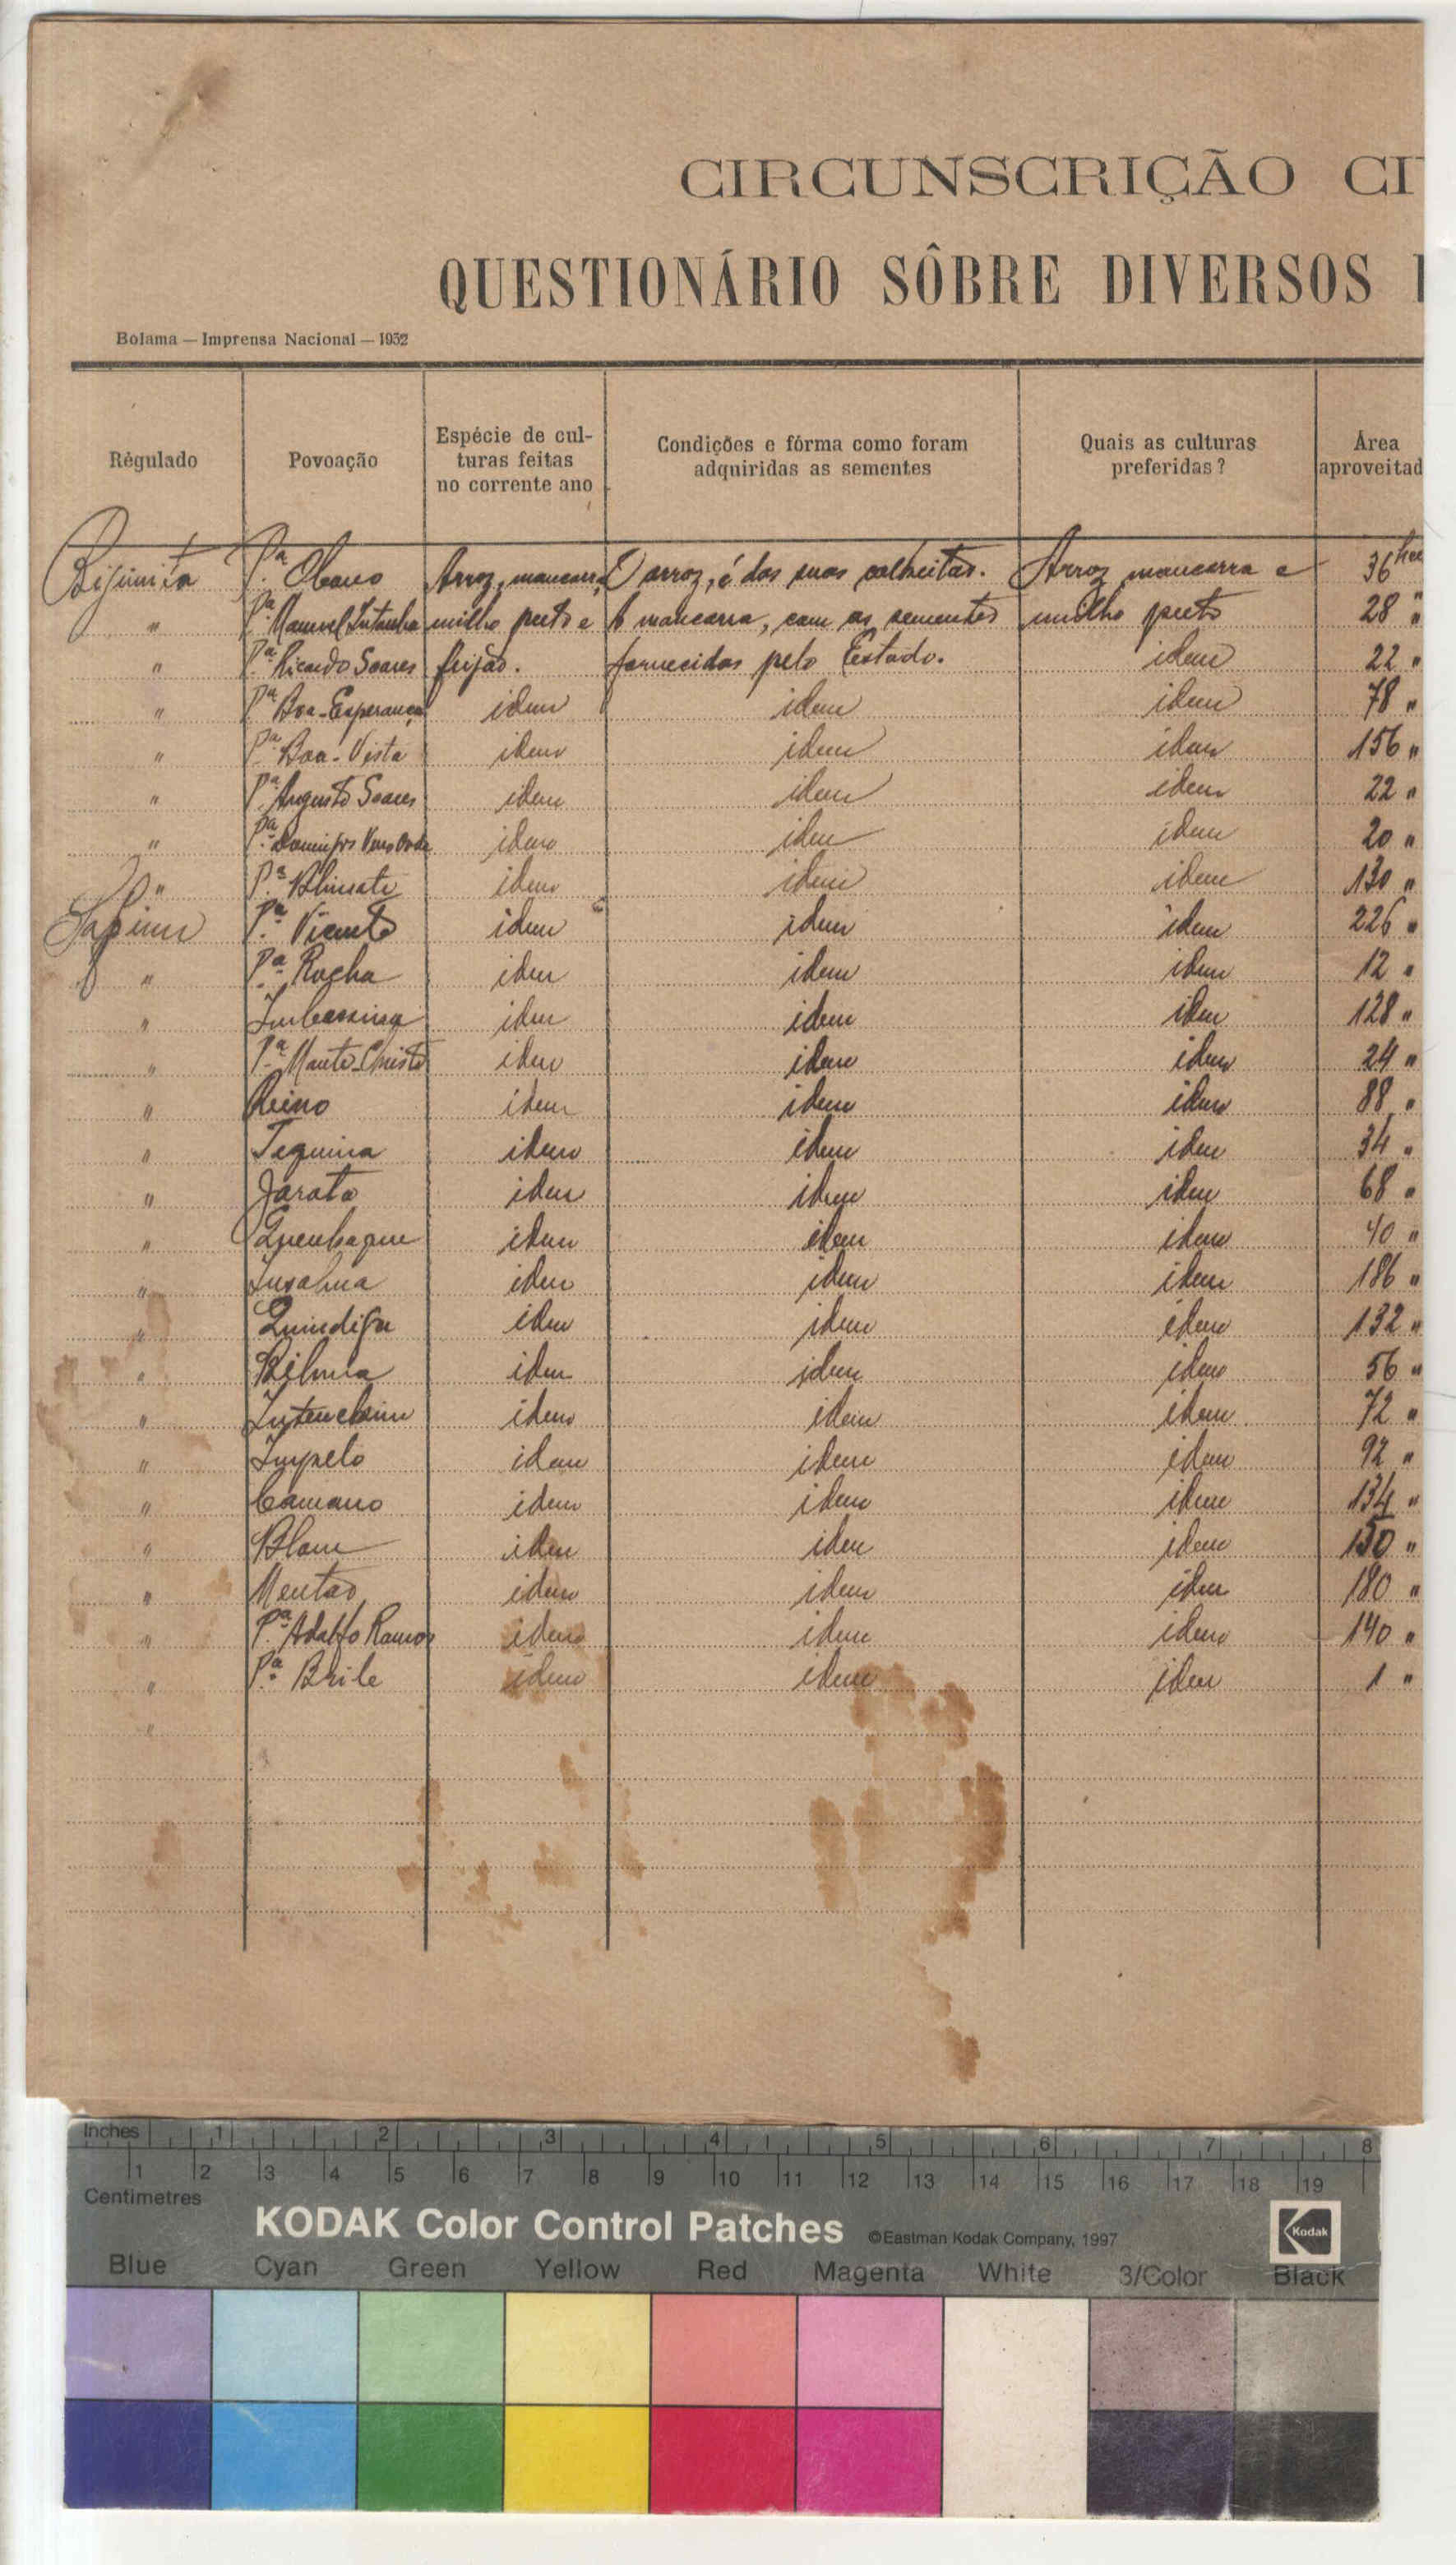 CIRCUNSCRIÇÃO CI
QUESTIONÁRIO SÔBRE DIVERSOS
Bolama — Imprensa Nacional — 1932
Régulado | Povoação | Espécie de culturas feitas no corrente ano | Condições e fórma como foram adquiridas as sementes | Quais as culturas preferidas? | Área aproveitad
Bijimita | P.ª Obano | Arroz, mancarra, | O arroz, é das suas colheitas. | Arroz mancarra e | 36 hec
" | P.ª Manuel Intanha | milho preto e | A mancarra, com as sementes | milho preto | 28 "
" | P.ª Ricardo Soares | feijão. | fornecidas pelo Estado. | idem | 22 "
" | P.ª Boa-Esperança | idem | idem | idem | 78 "
" | P.ª Boa-Vista | idem | idem | idem | 156 "
" | P.ª Augusto Soares | idem | idem | idem | 22 "
" | P.ª Domingos | idem | idem | idem | 20 "
" | P.ª | idem | idem | idem | 130 "
Safim | P.ª Vicente | idem | idem | idem | 226 "
" | P.ª Rocha | idem | idem | idem | 12 "
" | idem | idem | idem | 128 "
" | P.ª Monte-Christo | idem | idem | idem | 24 "
" | Reino | idem | idem | idem | 88 "
" | Tequina | idem | idem | idem | 34 "
" | Jarata | idem | idem | idem | 68 "
" | Quenhaque | idem | idem | idem | 40 "
" | Insalma | idem | idem | idem | 186 "
" | idem | idem | idem | 132 "
" | idem | idem | idem | 56 "
" | idem | idem | idem | 72 "
" | Impelo | idem | idem | idem | 92 "
" | Camano | idem | idem | idem | 134 "
" | Blom | idem | idem | idem | 150 "
" | Mentao | idem | idem | idem | 180 "
" | P.ª Adolfo Ramos | idem | idem | idem | 140 "
" | P.ª Brile | idem | idem | idem | 1 "
"
Inches 1 2 3 4 5 6 7 8
1 2 3 4 5 6 7 8 9 10 11 12 13 14 15 16 17 18 19
Centimetres
KODAK Color Control Patches ©Eastman Kodak Company, 1997 Kodak
Blue Cyan Green Yellow Red Magenta White 3/Color Black